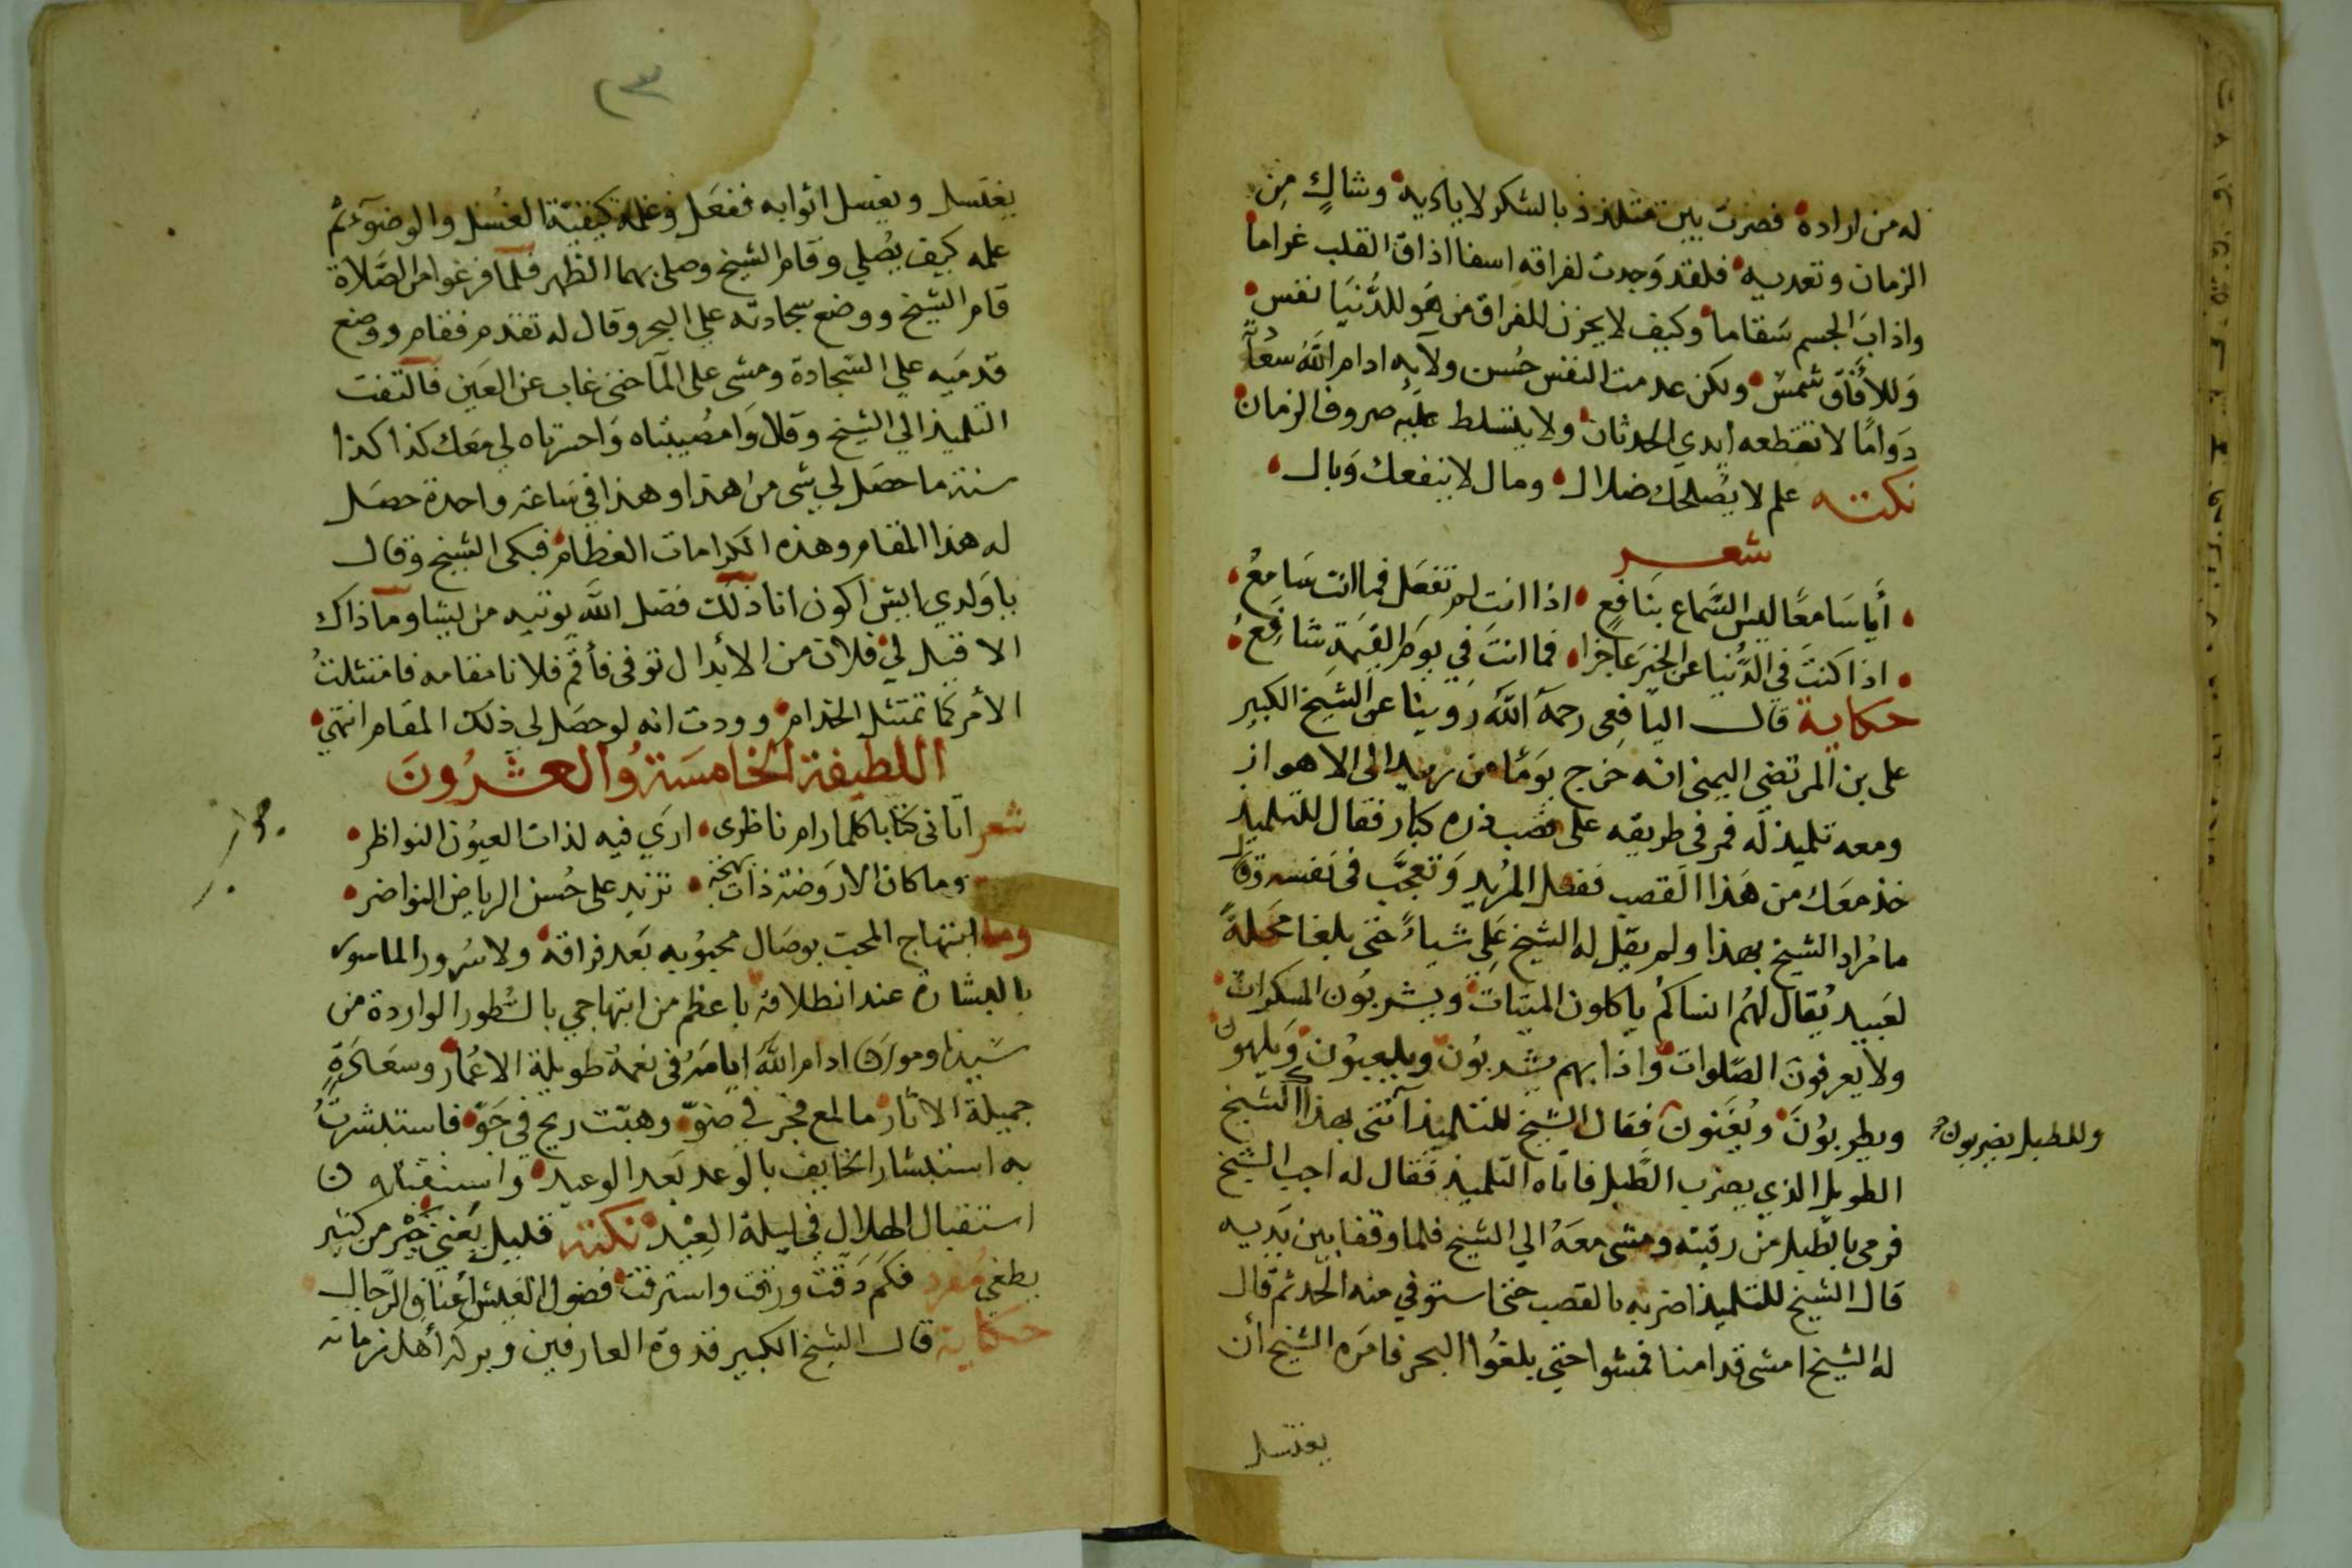 له من اراده فصرت بين متلذذ بالشكر لاياديه وشاكٍ مِن
الزمان وتعديه فلقد وَجدت لفراقه اسفا اذاق القلب غراما
واذابَ الجسم سَقاما وكيف لا يحزن للفراق من هَو للدُّنيَا نفس
وَللأفاق شمس ولكن عدمت النفس حُسن ولآيه ادام اللَّه سعا
دته
دَوامًا لا تقطعه ايدي الحدثان ولا يتسلط عليه صروف الزمان
نكتـه علم لا يصلحك ضلال ومال لا ينفعك وَبال
شعـر
أيا سَامعًا ليس السَّماع بنَافع اذا انت لم تفعَل فما انت سَامعُ
اذا كنتَ في الدُّنيا عن الخير عَاجزا فما انتَ في يوم القيمة شافعُ
حكاية قال اليافعى رحمه اللَّه رَوينا عن الشيخ الكبير
على بن المرتضي اليمنى انه خرج يومًا من زبيد الى الاهواز
ومعه تلميذ له فمر في طريقه على قصب ذره كبار فقال للتلميذ
خذ معَك من هَذا القصب ففعل المُريد وَتعجّب فى نفسه وقال
ما مُراد الشيخ بهذا ولم يقل له الشيخ على شياءً حتى بلغا محَلةً
لعَبيد يُقال لهُم ياكلون الميتات ويشربُون المسكرات
ولا يعرفونَ الصّلوات واذا بهم يشربُون ويلعبون وَيلهون
ويطربوُنَ ويُغَنون فقال الشيخ للتلميذ آئتنى بهذا الشيخ
وللطبل يضربون
الطويل الذي يضرب الطّبل فاتاه التلميذ فقال له اجب الشيخ
فرمى بالطبل من رقبته ومشى معَهُ الي الشيخ فلما وقفا بين يَديه
قال الشيخ للتلميذ اضربه بالقصب حتى استوفي منه الحد ثم قال
له الشيخ امشى قدامنا فمشوا حتى بلغوا البحر فامَره الشيخ أن
يغتسل
٢٣
يغتسل ويغسل اثوابه ففعَل وعلمه كيفيّة الغُسل والوضوَء ثم
علمه كيف يصُلي وقام الشيخ وصلى بهما الظهر فلمّا فرغوا من الصَّلاة
قام الشيخ ووضع سجادته علي البحر وقال له تقدم فقام ووضع
قدمَيه علي السّجادة ومشى على المآ حتى غاب عن العَين فالتفت
التلميذ الي الشيخ وقال وَامصُيبتاه وَاحسرتاه لي معَك كذا كذا
سنة ما حصَل لي شى من اهذا وهذا في سَاعة واحدة حصَل
له هذا المقام وهذه الكرامات العظام فبكى الشيخ وقال
ياوَلدي ايش اكون انا ذلك فضل اللَّه يوتيه من يشا وما ذاك
الا قيل لي فلان من الأبدال توفى فأقم فلانا مقامه فامتثلتُ
الأمر كما تمتثل الخدام وودت انه لو حصَل لي ذلك المقام انتهي
اللطيفة الخامسَة والعشرُونَ
شعر اتانى كتابا كلما رام ناظرى ارَي فيه لذات العيوُن النواظر
وما كان الا رَوضة ذات بهجة تزيد على حُسن الرياض النواضر
وما ابتهاج المحب بوصَال محبوُبه بَعد فراقه ولا سُرور الماسور
بالبشارة عند انطلاقه باعظم من ابتهاجي بالسُطور الواردة من
سَيدنا ومولانا ادام اللَّه ايامَهُ فى نعمة طويلة الاعُمار وسعَادَةٍ
جميلة الاثار ما لمع فجر في ضَوّه وهبّت ريح في جَوّه فاستبشرتُ
به استبشار الخايف بالوَعد بَعد الوعيد واستقبلته
استقبال الهلال في ليلة العِيْد نكتة قليل يَغني خَيْر من كثير
يطغي مفرد فكم دَقت ورَقت واسترقت فضول العَيش أعناق الرّجال
حكاية قال الشيخ الكبير قدوة العارفين وبركه أهل زمانه